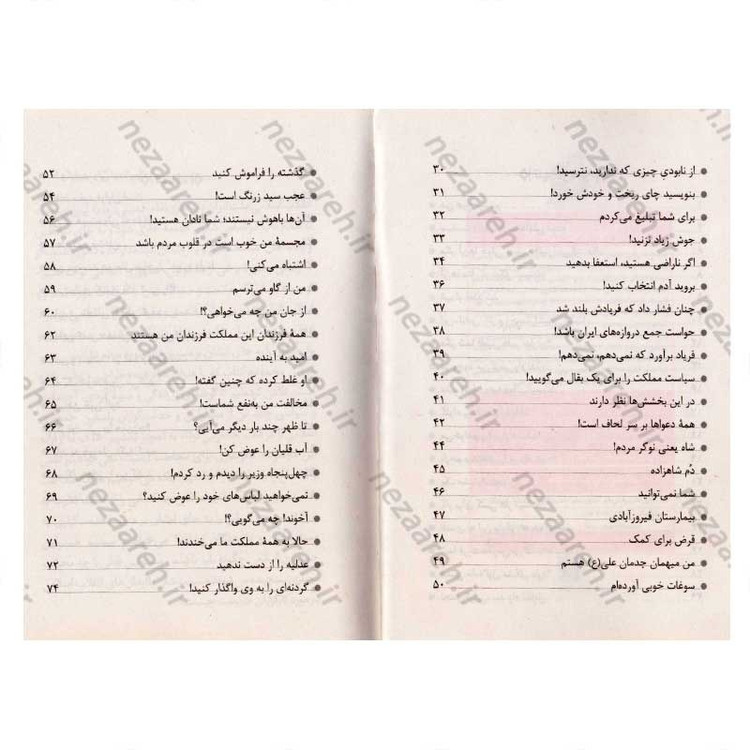 از نابودیِ چیزی که ندارید، نترسید! ۳۰
بنویسید چای ریخت و خودش خورد! ۳۱
برای شما تبلیغ می‌کردم ۳۲
جوش زیاد نزنید! ۳۳
اگر ناراضی هستید، استعفا بدهید ۳۴
بروید آدم انتخاب کنید! ۳۶
چنان فشار داد که فریادش بلند شد ۳۷
حواست جمع دروازه‌های ایران باشد! ۳۸
فریاد برآورد که نمی‌دهم، نمی‌دهم! ۳۹
سیاست مملکت را برای یک بقال می‌گویید! ۴۰
در این بخشش‌ها نظر دارند ۴۱
همهٔ دعواها بر سر لحاف است! ۴۲
شاه یعنی نوکر مردم! ۴۴
دُم شاهزاده ۴۵
شما نمی‌توانید ۴۶
بیمارستان فیروزآبادی ۴۷
قرض برای کمک ۴۸
من میهمان جدمان علی(ع) هستم ۴۹
سوغات خوبی آورده‌ام ۵۰
گذشته را فراموش کنید ۵۲
عجب سید زرنگ است! ۵۴
آن‌ها باهوش نیستند؛ شما نادان هستید! ۵۶
مجسمهٔ من خوب است در قلوب مردم باشد ۵۷
اشتباه می‌کنی! ۵۸
من از گاو می‌ترسم ۵۹
از جان من چه می‌خواهی؟! ۶۰
همهٔ فرزندان این مملکت فرزندان من هستند ۶۲
امید به آینده ۶۳
او غلط کرده که چنین گفته! ۶۴
مخالفت من به‌نفع شماست! ۶۵
تا ظهر چند بار دیگر می‌آیی؟ ۶۶
آب قلیان را عوض کن! ۶۷
چهل‌پنجاه وزیر را دیدم و رد کردم! ۶۸
نمی‌خواهید لباس‌های خود را عوض کنید؟ ۶۹
آخوند! چه می‌گویی؟! ۷۰
حالا به همهٔ مملکت ما می‌خندند! ۷۱
عدلیه را از دست ندهید ۷۲
گردنه‌ای را به وی واگذار کنید! ۷۴
nezaareh.ir